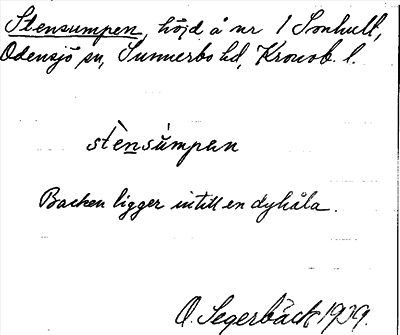 Stensumpen, höjd å nr 1 Sonhult,
Odensjö sn, Sunnerbo hd, Kronob. l.
stènsúmpen
Backen ligger intill en dyhåla.
O. Segerbäck 1939.